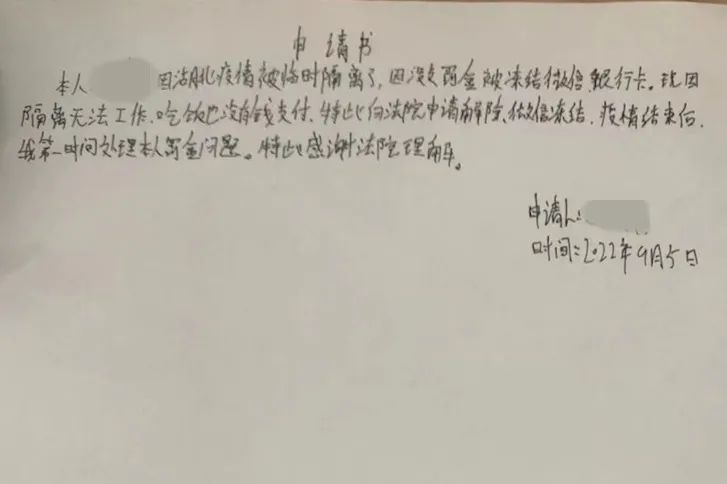 申请书
本人 因湖北疫情被临时隔离了，因没交罚金被冻结微信银行卡。现因
隔离无法工作、吃饭也没有钱支付、特此向法院申请解除微信冻结、疫情结束后，
我第一时间处理本人罚金问题。特此感谢法院理解。
申请人：
时间：2022年9月5日